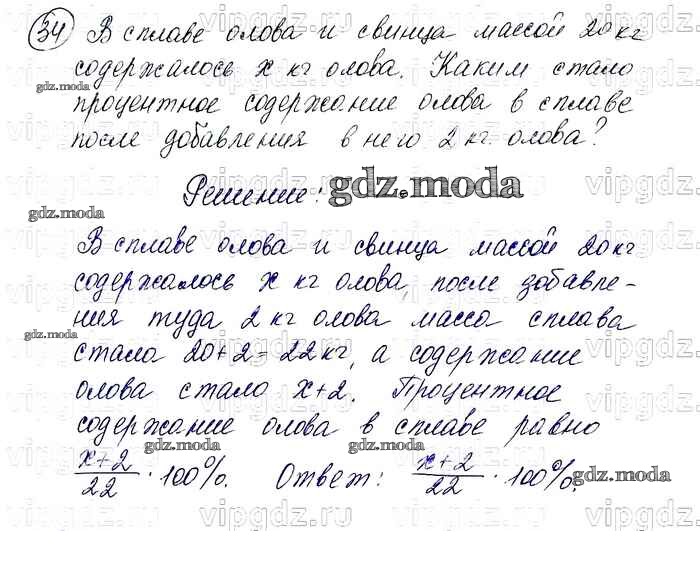 34 В сплаве олова и свинца массой 20 кг
содержалось x кг олова. Каким стало
процентное содержание олова в сплаве
после добавления в него 2 кг олова?
Решение:
В сплаве олова и свинца массой 20 кг
содержалось x кг олова, после добавле-
ния туда 2 кг олова масса сплава
стала 20+2=22 кг, а содержание
олова стало x+2. Процентное
содержание олова в сплаве равно
(x+2)/22 · 100%. Ответ: (x+2)/22 · 100%.
gdz.moda
gdz.moda
gdz.moda
gdz.moda
gdz.moda
gdz.moda
gdz.moda
gdz.moda
vipgdz.ru